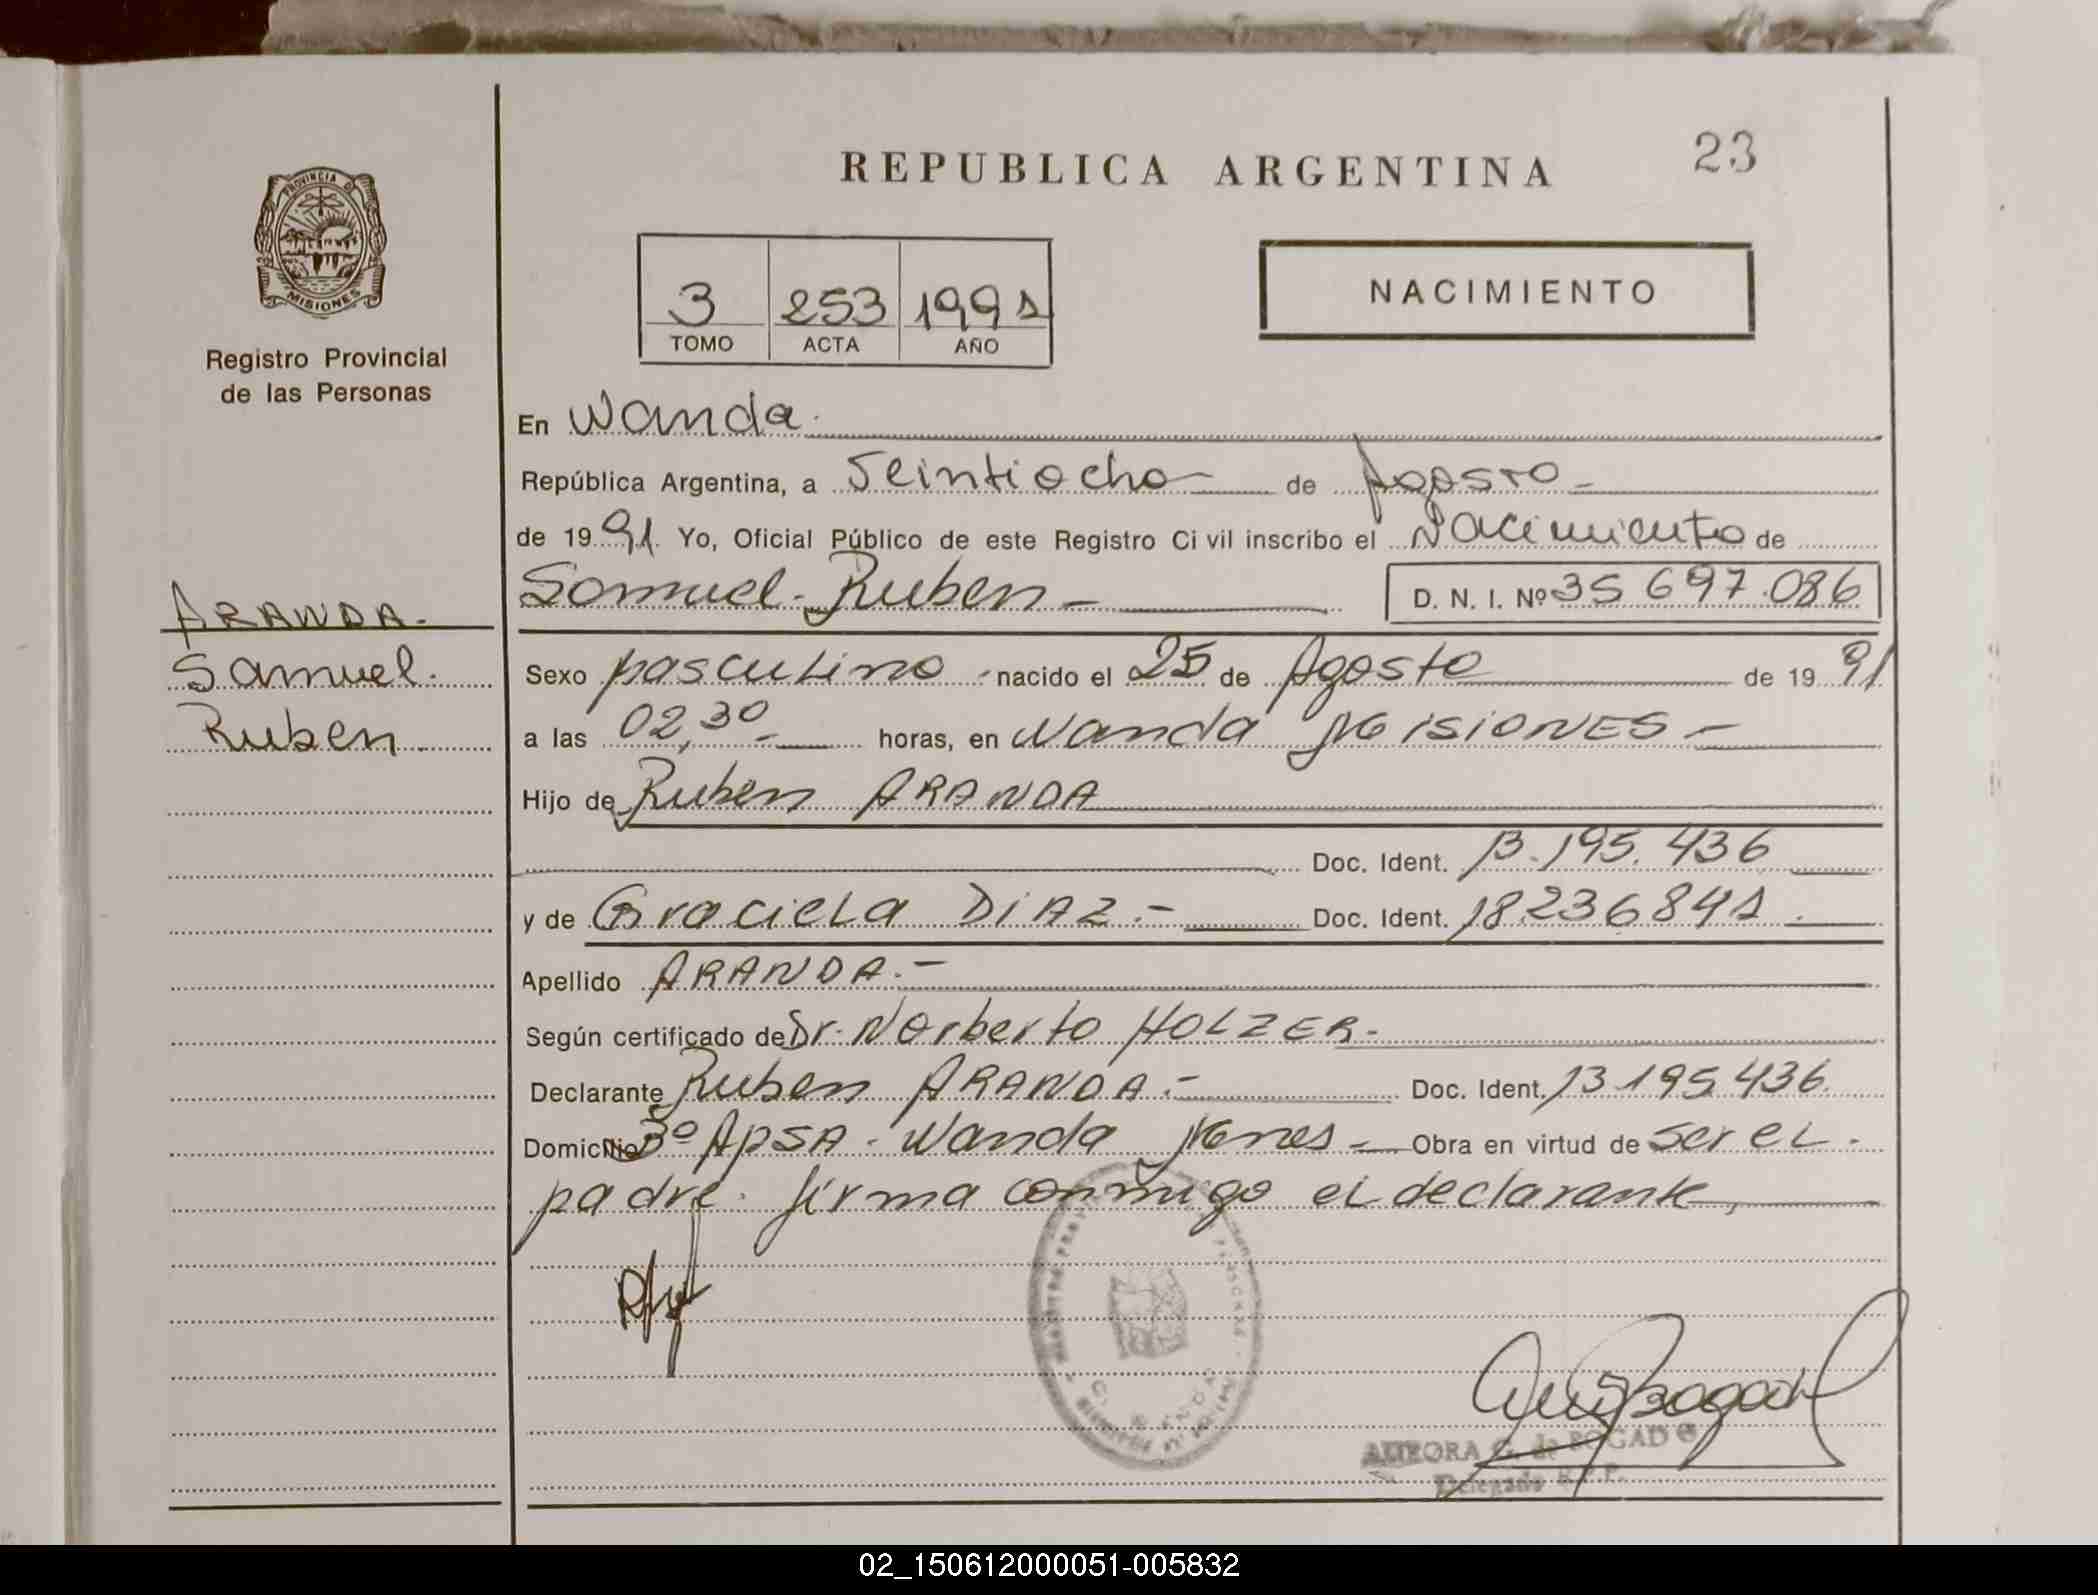 REPUBLICA ARGENTINA
23
PROVINCIA DE
MISIONES
Registro Provincial
de las Personas
3 253 1991
TOMO ACTA AÑO
NACIMIENTO
En Wanda.
República Argentina, a Veintiocho de Agosto
de 1991 Yo, Oficial Público de este Registro Civil inscribo el Nacimiento de
Samuel Ruben D. N. I. Nº 35 697.086
ARANDA.
Samuel.
Ruben
Sexo masculino nacido el 25 de Agosto de 1991
a las 02,30 horas, en Wanda MISIONES
Hijo de Ruben ARANDA
Doc. Ident. 13.195.436
y de Graciela DIAZ.- Doc. Ident. 18.236841.
Apellido ARANDA.-
Según certificado de Dr. Norberto HOLZER.
Declarante Ruben ARANDA.- Doc. Ident. 13.195.436.
Domicilio 3º APSA. Wanda Mnes Obra en virtud de ser el.
padre. firma conmigo el declarante,
AURORA G. de BOGADO
Delegado R.P.P.
02_150612000051-005832